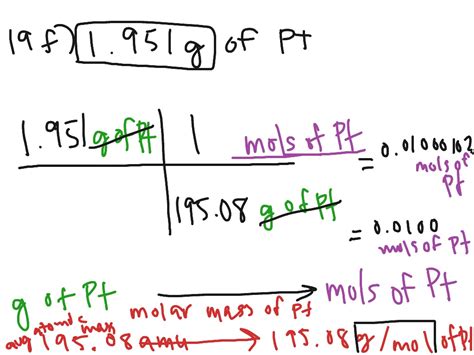 19f) 1.951 g of Pt
1.951 g of Pt 1 mols of Pt = 0.01000102 mols of Pt
195.08 g of Pt = 0.0100 mols of Pt
g of Pt → mols of Pt
molar mass of Pt
avg atomic mass 195.08 amu → 195.08 g/mol of Pt